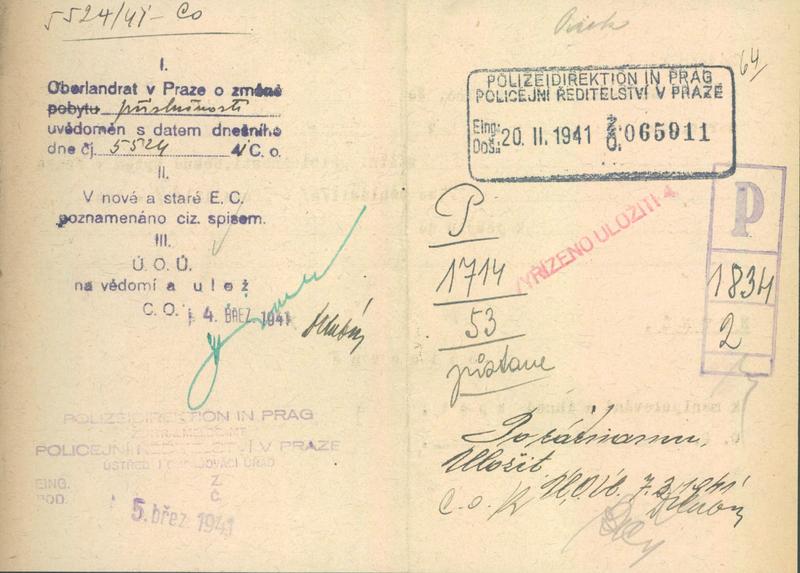 5524/41 - Co
I.
Oberlandrat v Praze o změně
pobytu příslušnosti
uvědoměn s datem dnešního
dne čj. 5524 41 C. o.
II.
V nové a staré E. C.
poznamenáno ciz. spisem.
III.
Ú. O. Ú.
na vědomí a ulož
C. O. 4. BŘEZ. 1941
POLIZEIDIREKTION IN PRAG
POLICEJNÍ ŘEDITELSTVÍ V PRAZE
ÚSTŘEDNÍ OHLAŠOVACÍ ÚŘAD
EING. Z.
DOD. Č.
5. břez 1941
64/
POLIZEIDIREKTION IN PRAG
POLICEJNÍ ŘEDITELSTVÍ V PRAZE
Eing.: Doš.: 20. II. 1941 Z. Č. 065911
P
1714
53
zůstane
VYŘÍZENO ULOŽITI 4
P
1834
2
Poznamenáno,
Uložit
C. o. 7.3.1941